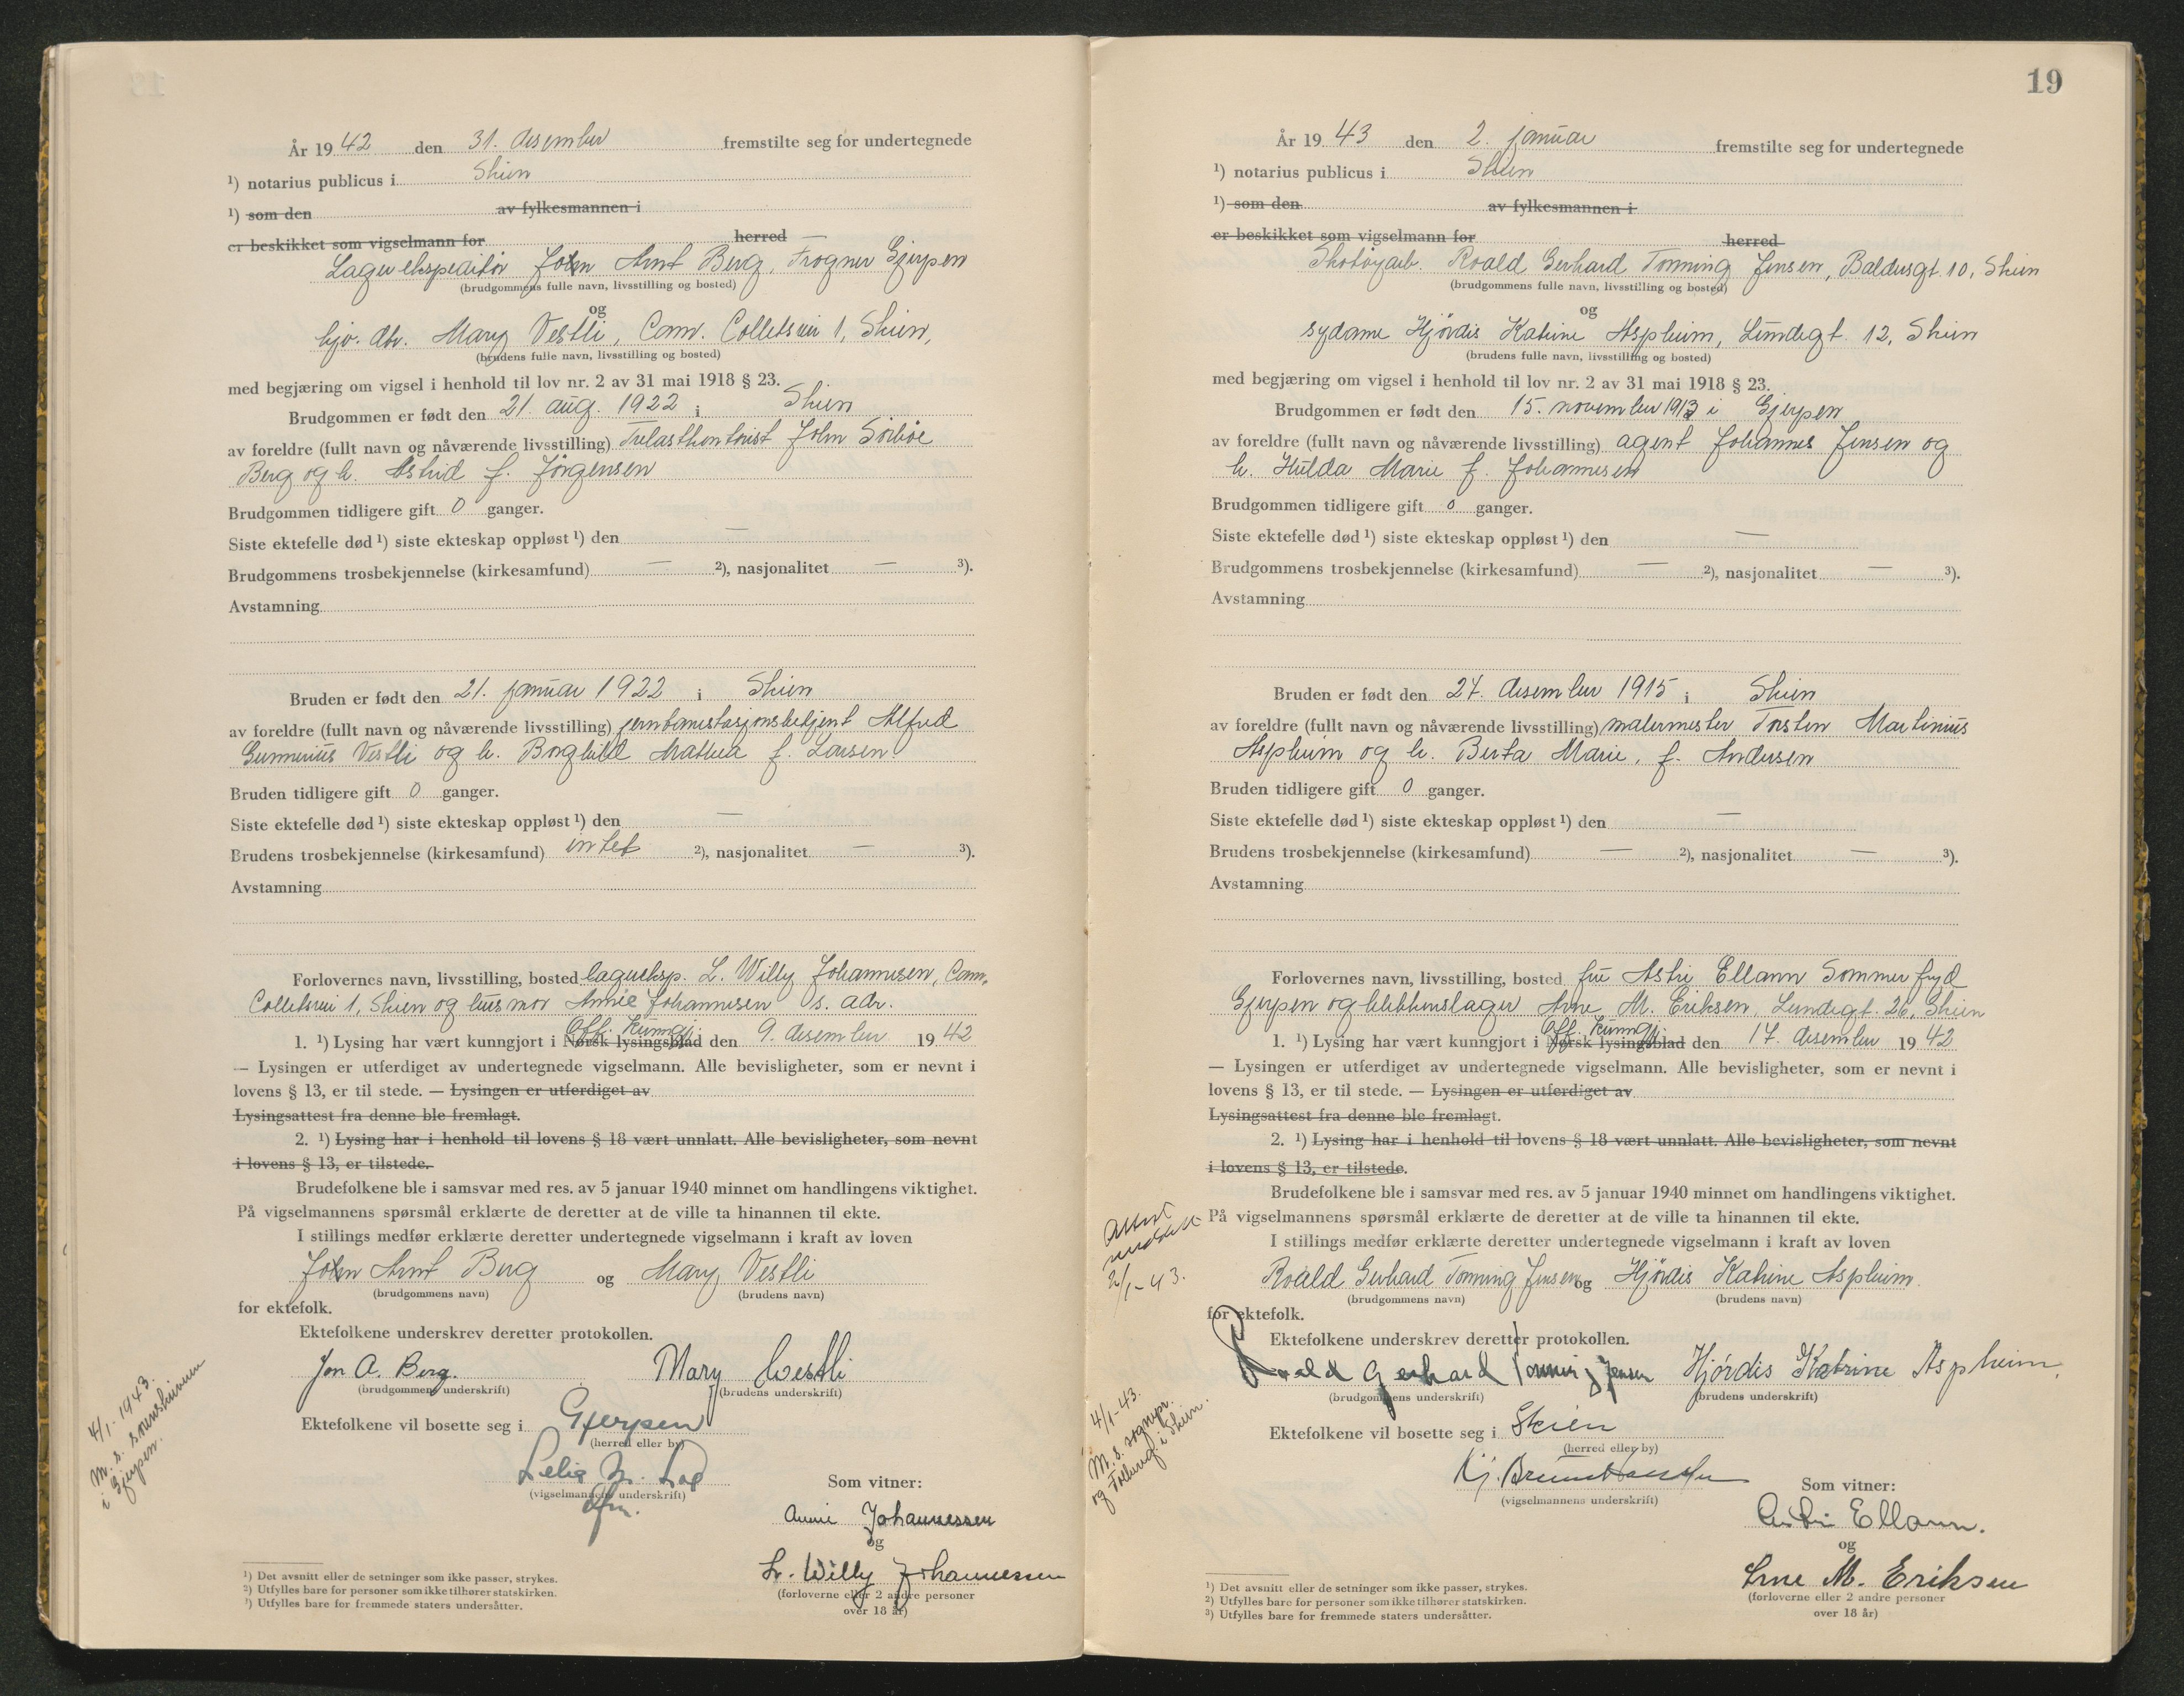 År 19 42 den 31. desember fremstilte seg for undertegnede
¹) notarius publicus i Skien
¹) som den av fylkesmannen i
er beskikket som vigselmann for herred —
Lagerekspeditør John Arnt Berg, Frogner Gjerpen
(brudgommens fulle navn, livsstilling og bosted)
og
hjv. dtr. Mary Vestli, Cam. Colletsvei 1, Skien,
(brudens fulle navn, livsstilling og bosted)
med begjæring om vigsel i henhold til lov nr. 2 av 31 mai 1918 § 23.
Brudgommen er født den 21. aug. 1922 i Skien
av foreldre (fullt navn og nåværende livsstilling) Trelasthentorist John Sörbøe
Berg og h. Astrid f. Jörgensen
Brudgommen tidligere gift 0 ganger.
Siste ektefelle død ¹) siste ekteskap oppløst ¹) den —
Brudgommens trosbekjennelse (kirkesamfund) — ²), nasjonalitet — ³).
Avstamning
Bruden er født den 21. januar 1922 i Skien
av foreldre (fullt navn og nåværende livsstilling) jernbanestasjonsbetjent Alfred
Gunnerius Vestli og h. Borghild Mathea f. Larsen
Bruden tidligere gift 0 ganger.
Siste ektefelle død ¹) siste ekteskap oppløst ¹) den —
Brudens trosbekjennelse (kirkesamfund) intet ²), nasjonalitet — ³).
Avstamning
Forlovernes navn, livsstilling, bosted lagereksp. L. Willy Johannesen, Cam.
Colletsvei 1, Skien og husmor Annie Johannesen s. adr.
Off. Kunngj.
1. ¹) Lysing har vært kunngjort i Norsk lysingsblad den 9. desember 19 42
— Lysingen er utferdiget av undertegnede vigselmann. Alle bevisligheter, som er nevnt i
lovens § 13, er til stede. — Lysingen er utferdiget av
Lysingsattest fra denne ble fremlagt.
2. ¹) Lysing har i henhold til lovens § 18 vært unnlatt. Alle bevisligheter, som nevnt
i lovens § 13, er tilstede.
Brudefolkene ble i samsvar med res. av 5 januar 1940 minnet om handlingens viktighet.
På vigselmannens spørsmål erklærte de deretter at de ville ta hinannen til ekte.
I stillings medfør erklærte deretter undertegnede vigselmann i kraft av loven
John Arnt Berg og Mary Vestli
(brudgommens navn) (brudens navn)
for ektefolk.
Ektefolkene underskrev deretter protokollen.
Jon A. Berg. Mary Westli
(brudgommens underskrift) (brudens underskrift)
Ektefolkene vil bosette seg i Gjerpen
(herred eller by)
(vigselmannens underskrift)
Som vitner:
Annie Johannessen
og
L. Willy Johannessen
(forloverne eller 2 andre personer
over 18 år)
4/1. 1943.
M. s.
i Gjerpen.
¹) Det avsnitt eller de setninger som ikke passer, strykes.
²) Utfylles bare for personer som ikke tilhører statskirken.
³) Utfylles bare for fremmede staters undersåtter.
19
År 19 43 den 2. januar fremstilte seg for undertegnede
¹) notarius publicus i Skien
¹) som den av fylkesmannen i
er beskikket som vigselmann for herred
Skotøyarb. Roald Gerhard Tonning Jensen, Baldersgt. 10, Skien
(brudgommens fulle navn, livsstilling og bosted)
og
sydame Hjördis Katrine Aspheim, Lundegt. 12, Skien
(brudens fulle navn, livsstilling og bosted)
med begjæring om vigsel i henhold til lov nr. 2 av 31 mai 1918 § 23.
Brudgommen er født den 15. november 1913 i Gjerpen
av foreldre (fullt navn og nåværende livsstilling) agent Johannes Jensen og
h. Hulda Marie f. Johannesen
Brudgommen tidligere gift 0 ganger.
Siste ektefelle død ¹) siste ekteskap oppløst ¹) den —
Brudgommens trosbekjennelse (kirkesamfund) — ²), nasjonalitet — ³).
Avstamning
Bruden er født den 24. desember 1915 i Skien
av foreldre (fullt navn og nåværende livsstilling) malermester Torsten Martinius
Aspheim og h. Berta Marie, f. Andersen
Bruden tidligere gift 0 ganger.
Siste ektefelle død ¹) siste ekteskap oppløst ¹) den —
Brudens trosbekjennelse (kirkesamfund) — ²), nasjonalitet — ³).
Avstamning
Forlovernes navn, livsstilling, bosted fru Astri Ellann Sommerfryd
Gjerpen og blikkenslager Arne M. Eriksen, Lundegt. 26, Skien
Off. Kunngj.
1. ¹) Lysing har vært kunngjort i Norsk lysingsblad den 17. desember 19 42
— Lysingen er utferdiget av undertegnede vigselmann. Alle bevisligheter, som er nevnt i
lovens § 13, er til stede. — Lysingen er utferdiget av
Lysingsattest fra denne ble fremlagt.
2. ¹) Lysing har i henhold til lovens § 18 vært unnlatt. Alle bevisligheter, som nevnt
i lovens § 13, er tilstede.
Brudefolkene ble i samsvar med res. av 5 januar 1940 minnet om handlingens viktighet.
På vigselmannens spørsmål erklærte de deretter at de ville ta hinannen til ekte.
I stillings medfør erklærte deretter undertegnede vigselmann i kraft av loven
Roald Gerhard Tonning Jensen og Hjördis Katrine Aspheim.
(brudgommens navn) (brudens navn)
for ektefolk.
Ektefolkene underskrev deretter protokollen.
Roald Gerhard Tonning Jensen Hjórdis Katrine Aspheim.
(brudgommens underskrift) (brudens underskrift)
Ektefolkene vil bosette seg i Skien
(herred eller by)
(vigselmannens underskrift)
Som vitner:
Astri Ellann.
og
Arne M. Eriksen
(forloverne eller 2 andre personer
over 18 år)
Attest
utstedt
2/1-43.
4/1-43.
M. s. sognepr.
og Folkereg. i Skien.
¹) Det avsnitt eller de setninger som ikke passer, strykes.
²) Utfylles bare for personer som ikke tilhører statskirken.
³) Utfylles bare for fremmede staters undersåtter.